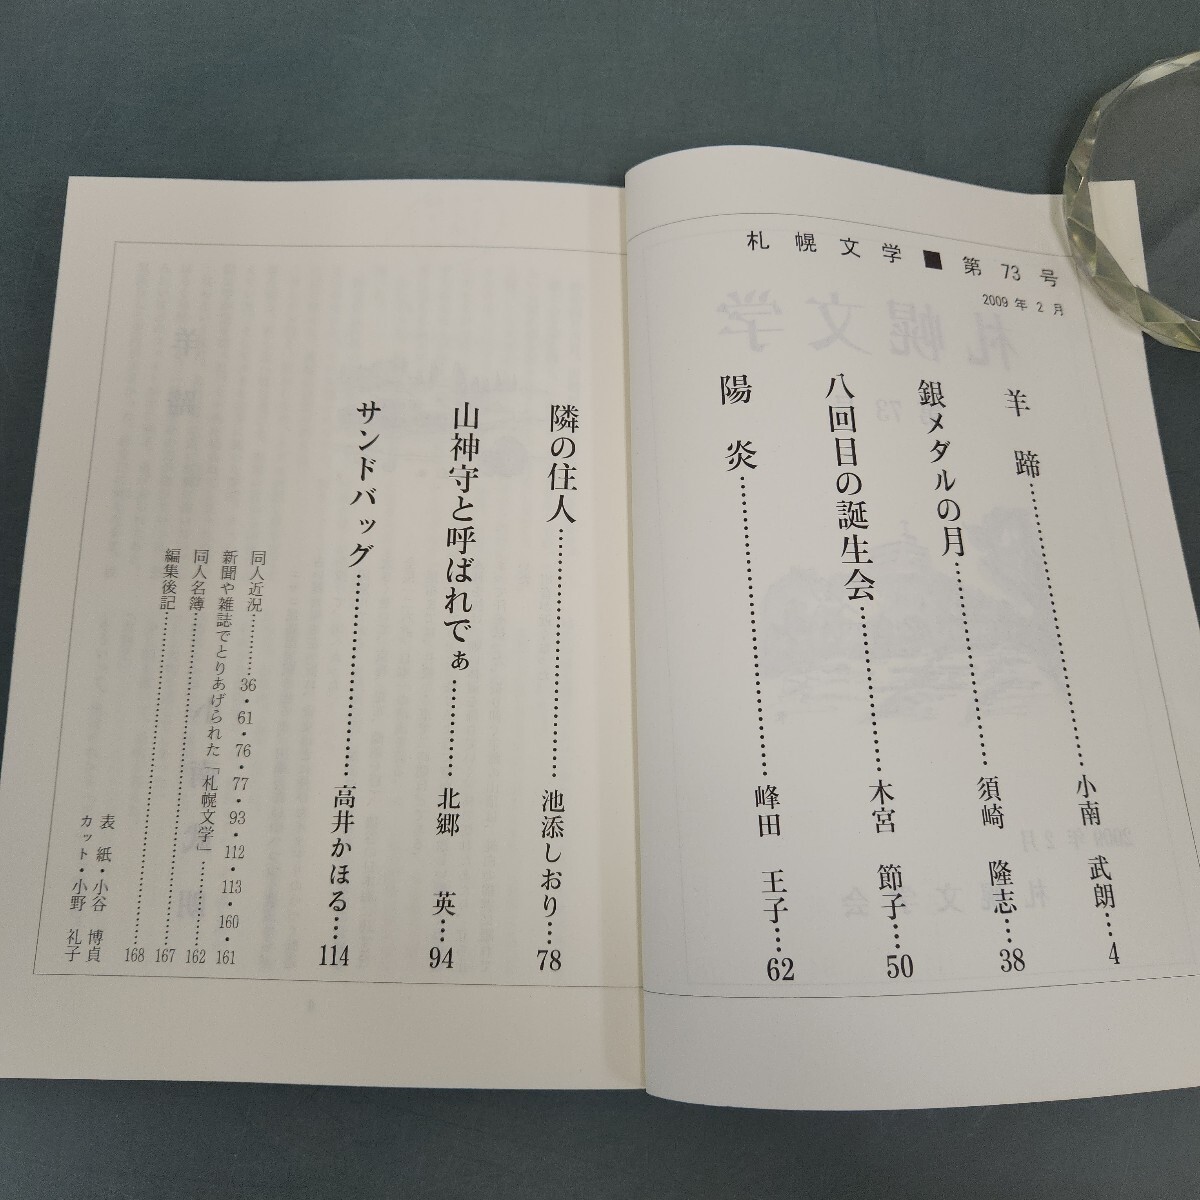 札幌文学■第73号
2009年2月
羊蹄……………………小南 武朗…4
銀メダルの月……………………須崎 隆志…38
八回目の誕生会……………………木宮 節子…50
陽炎……………………峰田 王子…62
隣の住人……………………池添しおり…78
山神守と呼ばれでぁ…………北郷 英…94
サンドバッグ……………………高井かほる…114
同人近況…………36・61・76・77・93・112・113・160・161
新聞や雑誌でとりあげられた「札幌文学」…………162
同人名簿……………………167
編集後記……………………168
表紙・小谷 博貞
カット・小野 礼子